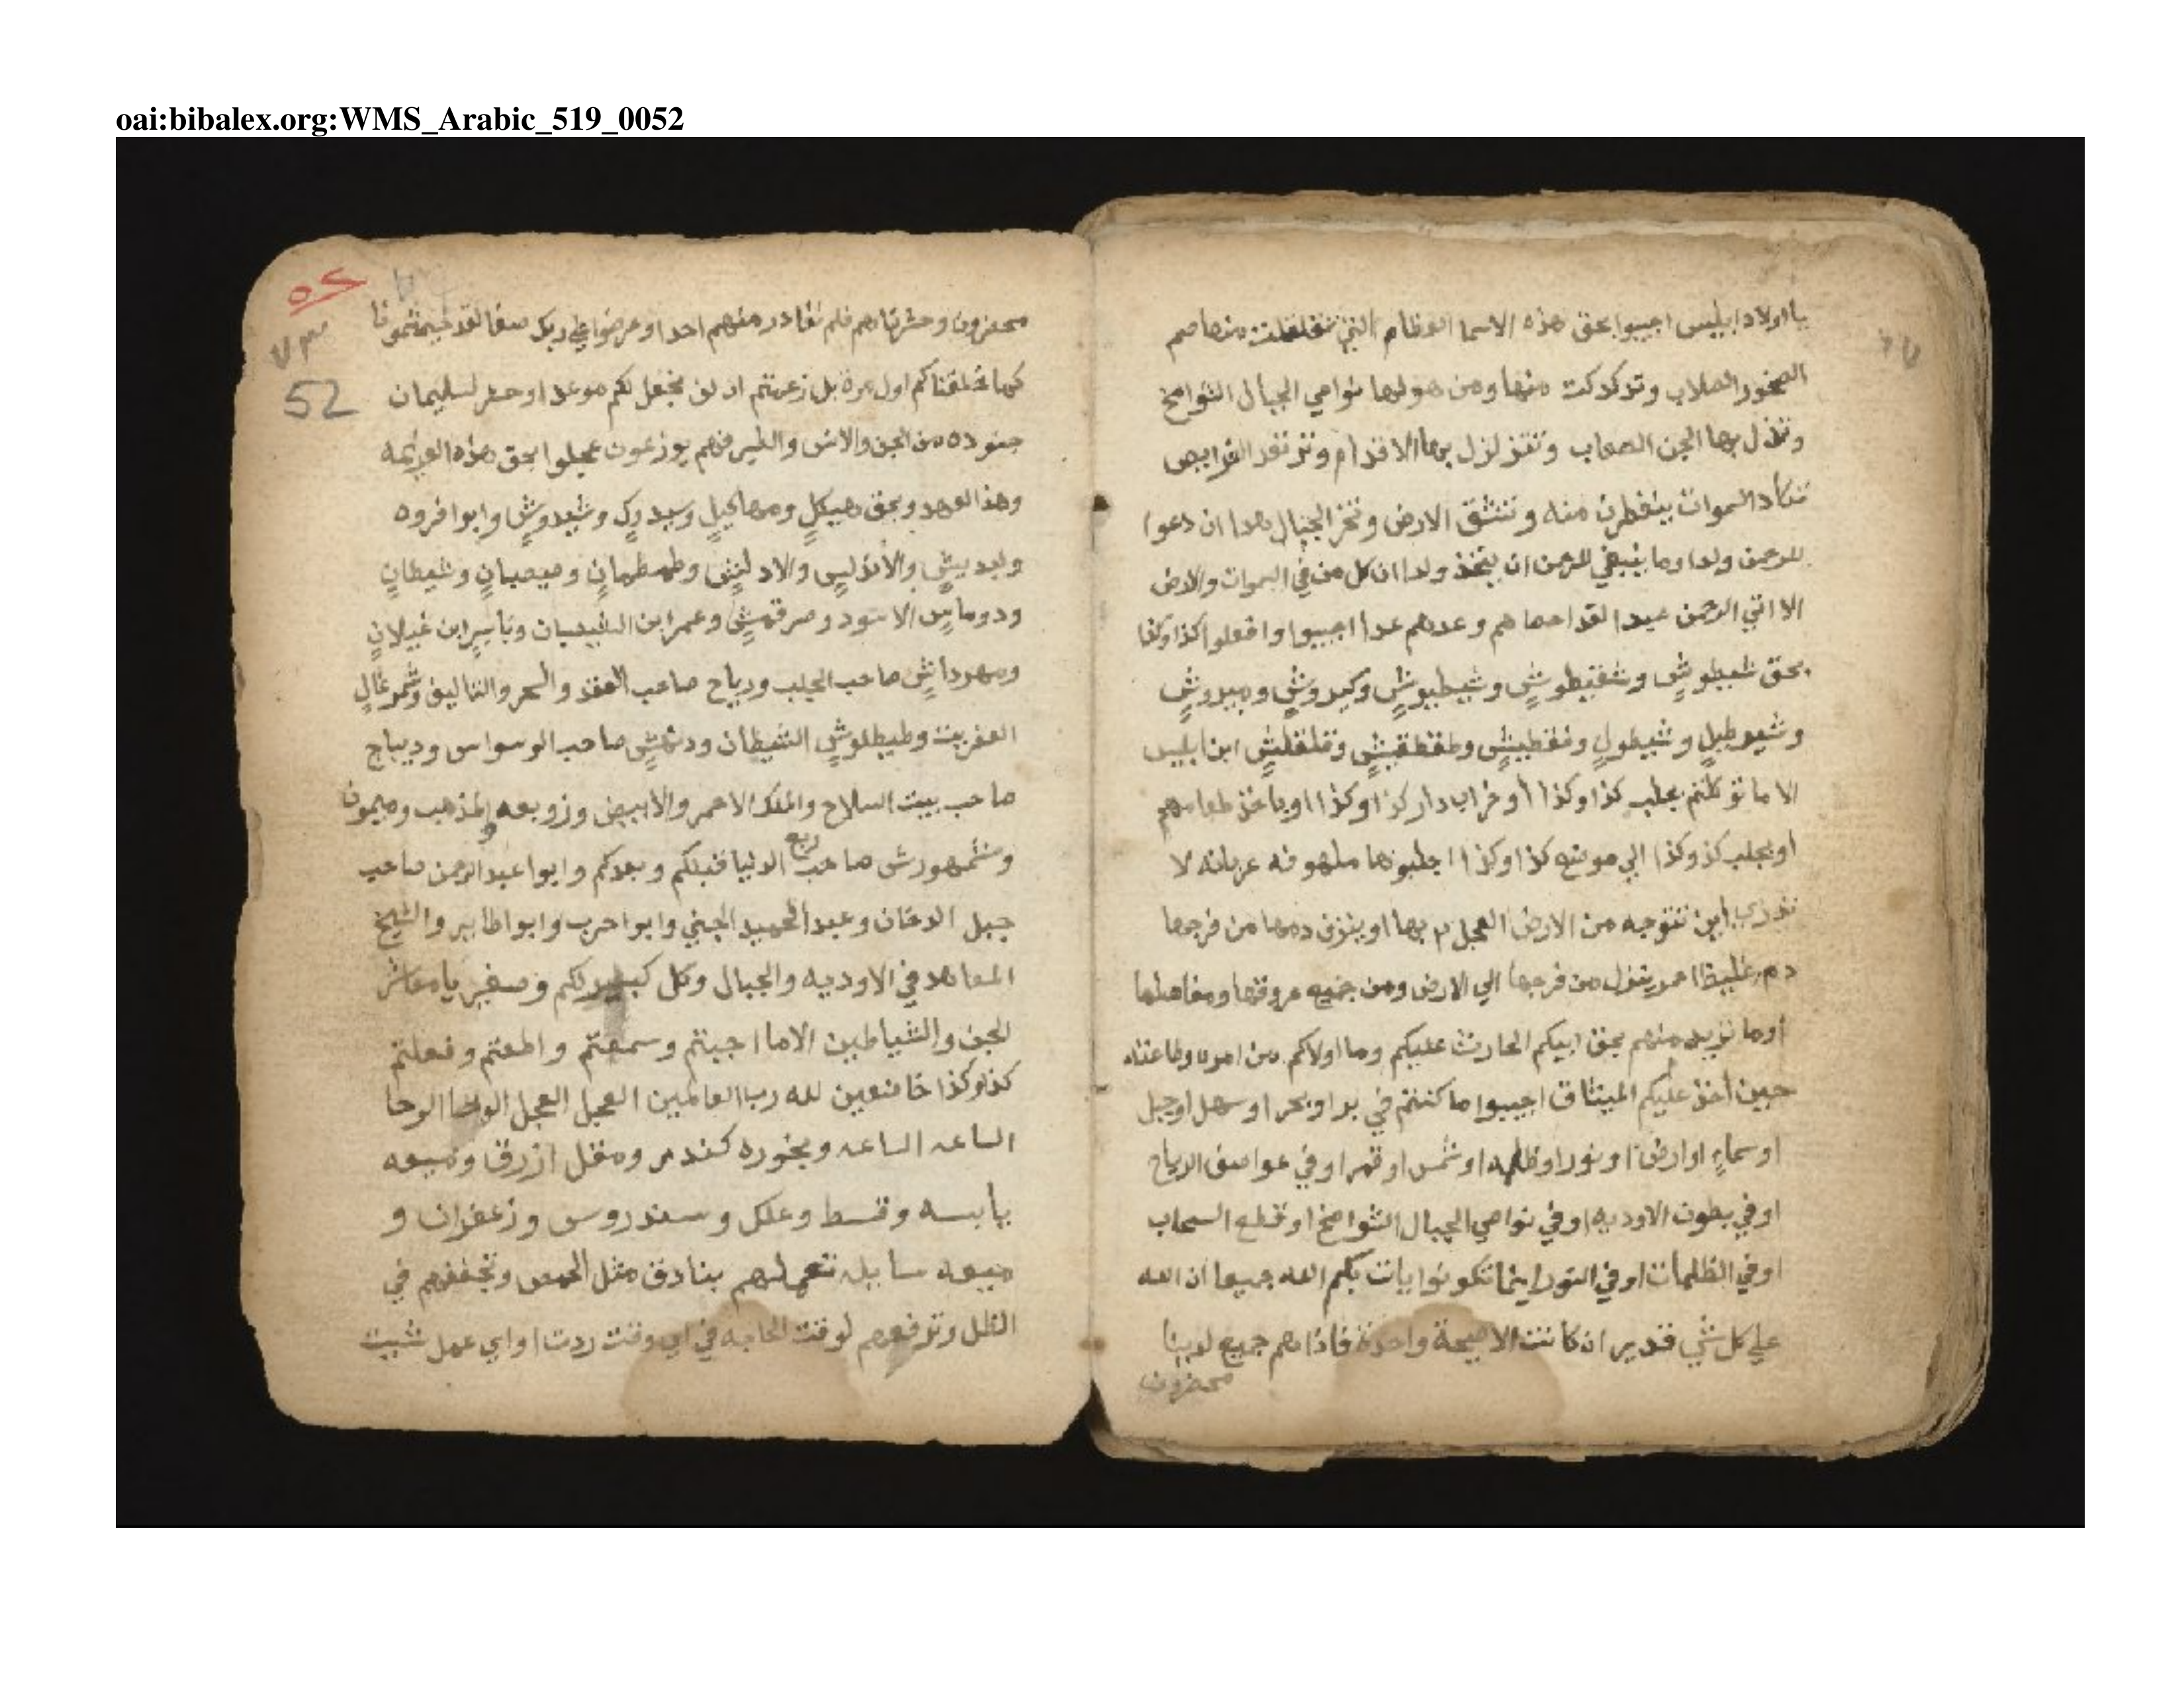 oai:bibalex.org:WMS_Arabic_519_0052
يا اولاد ابليس اجيبوا بحق هذه الاسما العظام التي تقلقلت منها صم
الصخور الصلاب وتدكدكت منها ومن هولها نواصي الجبال الشوامخ
وتذل بها الجن الصعاب وتتزلزل بها الاقدام وترتعد الفرايص
تكاد السموات يتفطرن منه وتنشق الارض وتخر الجبال هدا ان دعوا
للرحمن ولدا وما ينبغي للرحمن ان يتخذ ولدا ان كل من في السموات والارض
الا اتي الرحمن عبدا لقد احصاهم وعدهم عدا اجيبوا وافعلوا كذا وكذا
بحق شعيطوش وشقيطوش وشيطيوش وكيدوش وبيدوش
وشيوطيل وشيطول وفقطيش وطقطقيش وقلقليش ابن ابليس
الا ما توكلتم بجلب كذا وكذا أو خراب دار كذا وكذا او ياخذ طعامهم
او بجلب كذ وكذا الي موضع كذا وكذا اجلبوها ملهوفه عريانه لا
تدري اين تتوجه من الارض العجل ٣ بها او ينزف دمها من فرجها
دم غليظ احمر ينزل من فرجها الي الارض ومن جميع عروقها ومفاصلها
أوما نريد منهم بحق ابيكم الحارث عليكم وما اولاكم من امره وطاعته
حين أخذ عليكم الميثاق اجيبوا ما كنتم في بر او بحر او سهل او جبل
او سماء او ارض او نور او ظلمه او شمس او قمر او في عواصف الرياح
او في بطون الاوديه او في نواصي الجبال الشوامخ او قطع السحاب
او في الظلمات او في النور اينما تكونوا يات بكم الله جميعا ان الله
علي كل شي قدير ان كانت الا صيحة واحدة فاذا هم جميع لدينا
محضرون
٥٢
٧٣
52
محضرون وحشرناهم فلم نغادر منهم احدا وعرضوا علي ربك صفا لقد جيتمونا
كما خلقناكم اول مرة بل زعمتم ان لن نجعل لكم موعدا وحشر لسليمان
جنوده من الجن والانس والطير فهم يوزعون عجلوا بحق هذه العزيمه
وهذا العهد وبحق هيكل ومهاكيل وسيدرك وشيدوش وابوا فروه
ولديش والأندليس والاد لنش وطمطمان وصعصعان وشيطان
ودوماس الاسود وصرقهش وعمر ابن الشيصبان وياسر ابن غيلان
ومهرداش صاحب الجلب ورياح صاحب العقد والسحر والتاليف وشمرغال
العفريت وطيطلوش الشيطان ودنهش صاحب الوسواس وديباج
صاحب بيت السلاح والملك الاحمر والابيض وزوبعه والمذهب وميمون
وشمهورش صاحب ربع الدنيا قبلكم وبعدكم وابوا عبد الرحمن صاحب
جبل الدخان وعبد الحميد الجني وابوا حرب وابوا طاير والشيخ
المعاهد في الاوديه والجبال وكل كبيركم وصغير يا معاشر
الجن والشياطين الا ما اجبتم وسمعتم واطعتم وفعلتم
كذا وكذا خاضعين لله رب العالمين العجل العجل الوحا الوحا
الساعه الساعه وبخوره كندر ومقل ازرق وميعه
يابسه وقسط وعلك وسندروس وزعفران و
ميعه سايله تعملهم بنادق مثل الحمص وتجففهم في
الظل وترفعهم لوقت الحاجه في اي وقت ردت او اي عمل شيت